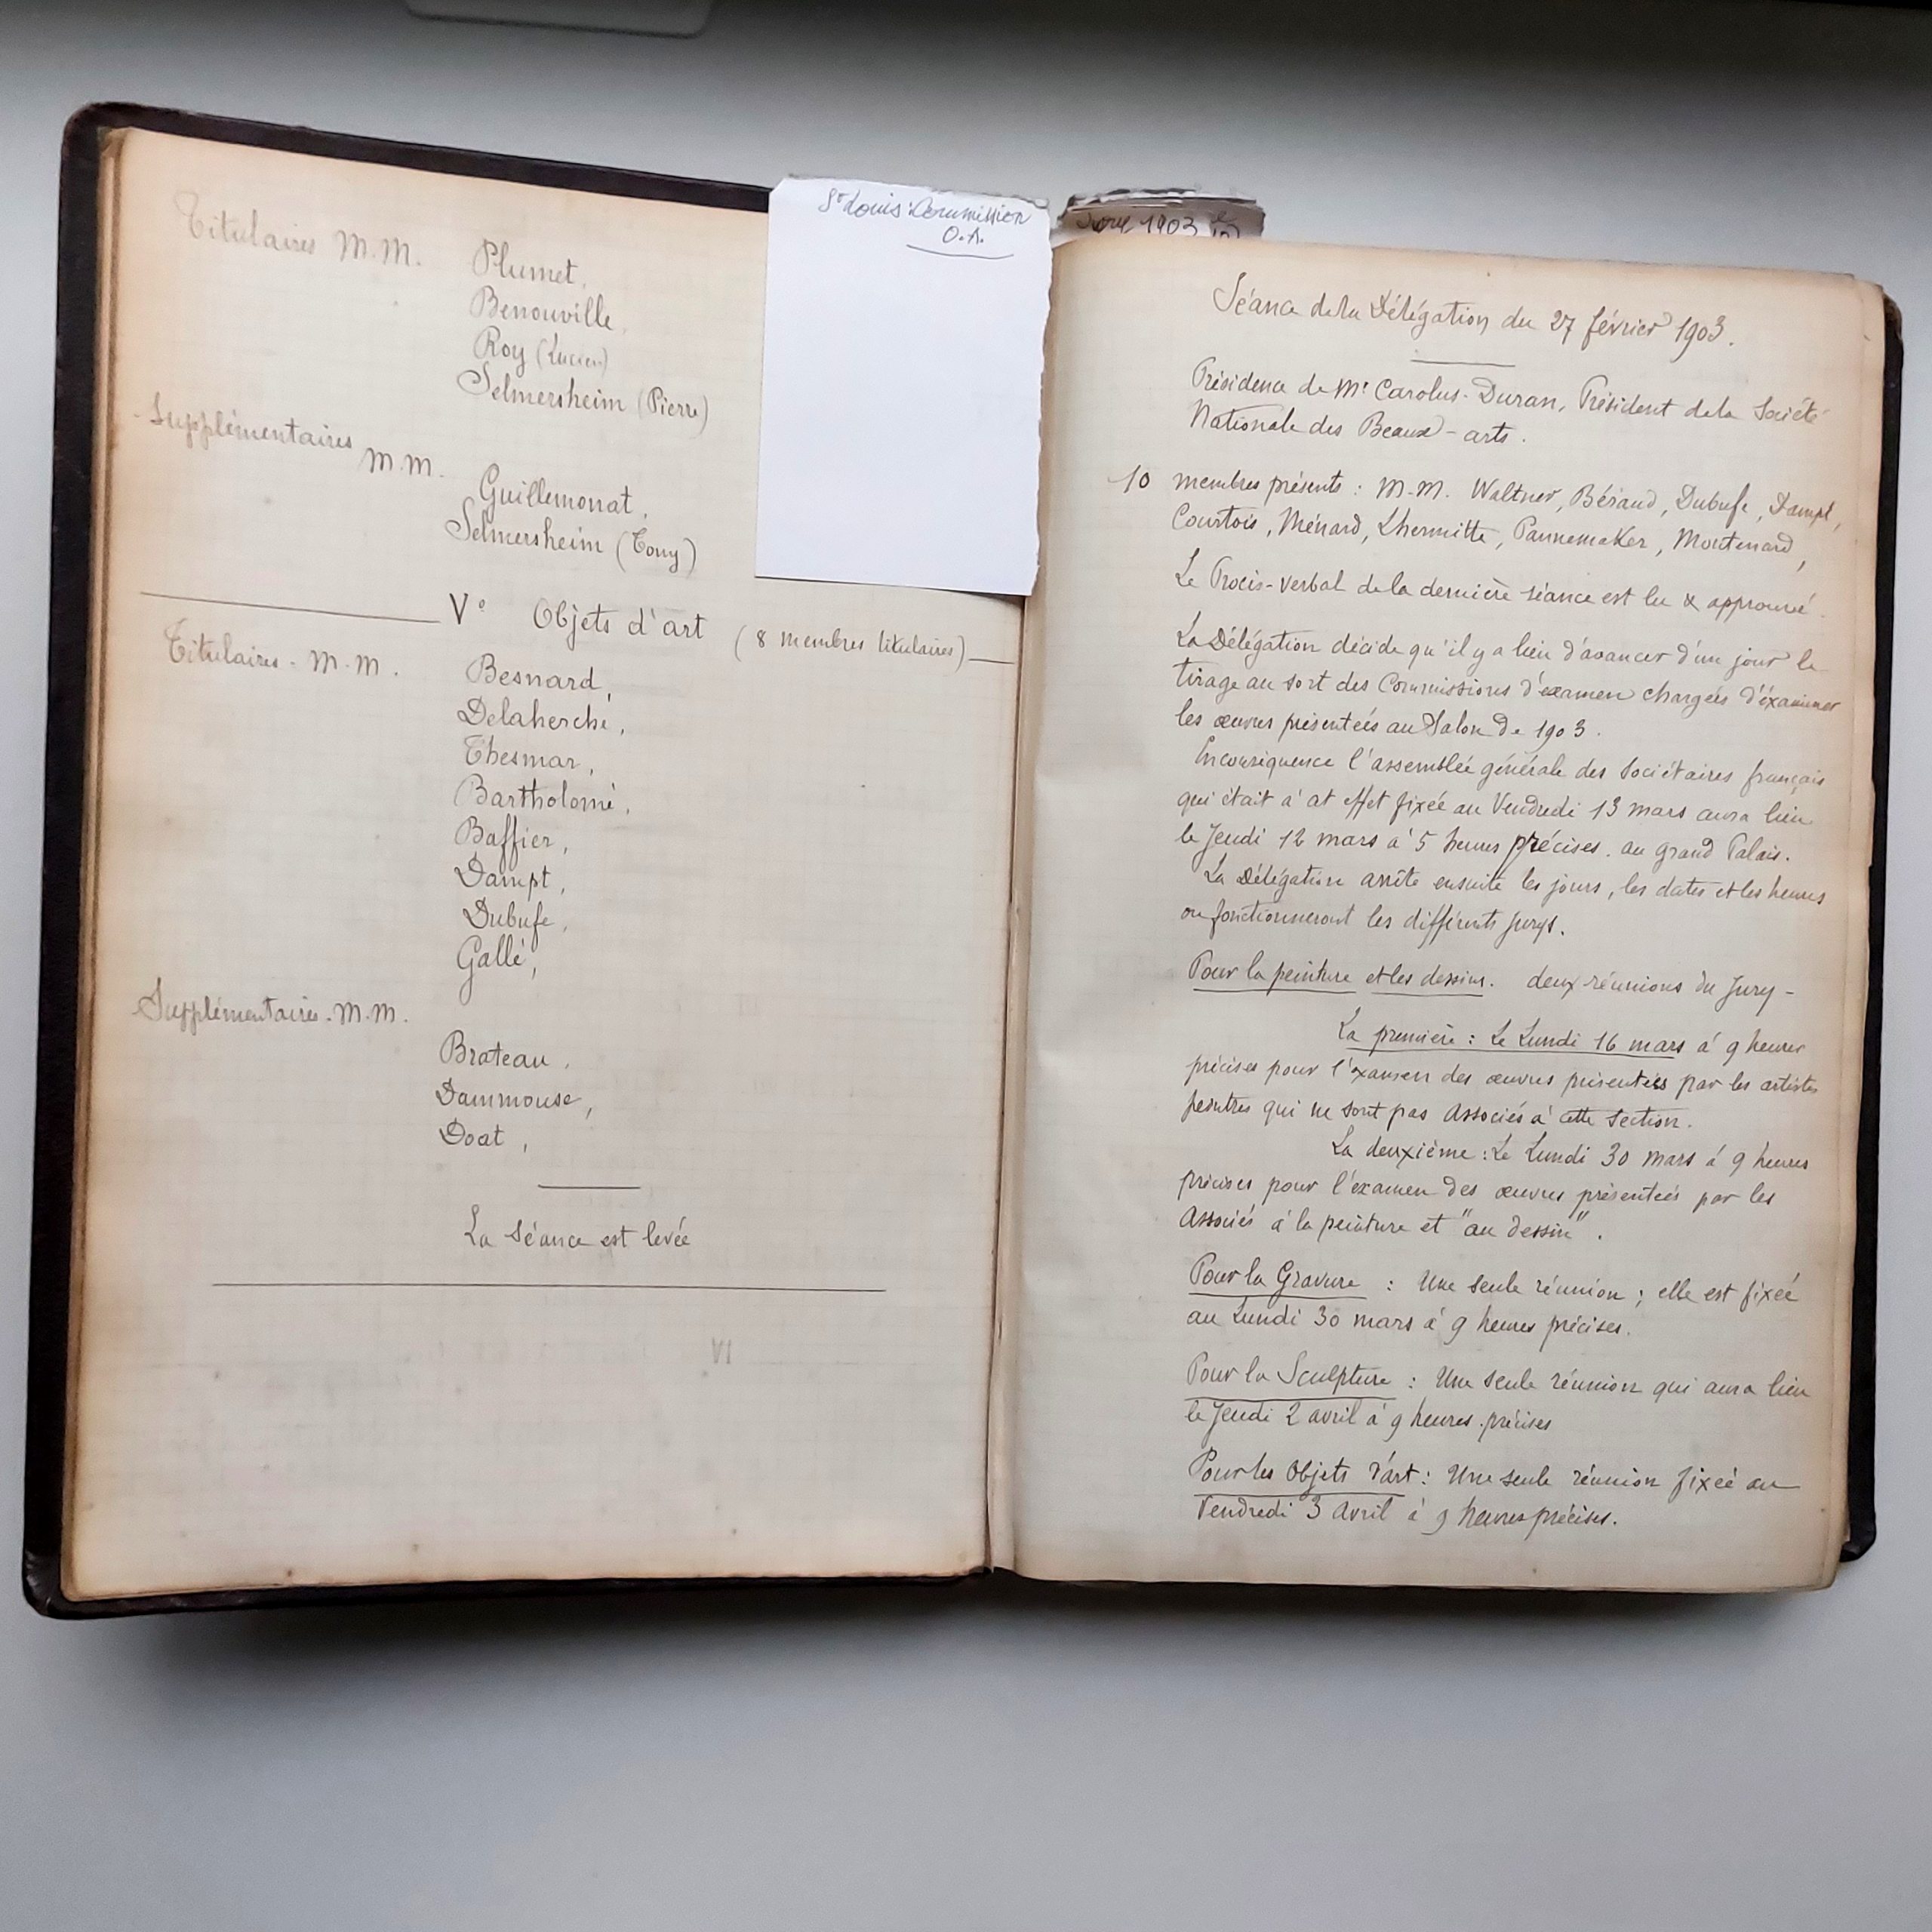 Titulaires M.M. Plumet,
Benouville,
Roy (Lucien)
Selmersheim (Pierre)
Supplémentaires
M.M. Guillemonat,
Selmersheim (Tony)
V° Objets d'art (8 membres titulaires)
Titulaires - M.M. Besnard,
Delaherche,
Thesmar,
Bartholomé,
Baffier,
Dampt,
Dubufe,
Gallé,
Supplémentaires - M.M.
Brateau,
Dammouse,
Doat,
La séance est levée
VI
St Louis : Commission
O.A.
Jury 1903
Séance de la Délégation du 27 février 1903.
Présidence de Mr Carolus-Duran, Président de la Société
Nationale des Beaux-arts.
10 membres présents : M.M. Waltner, Béraud, Dubufe, Dampt,
Courtois, Ménard, Lhermitte, Pannemaker, Montenard,
Le Procès-verbal de la dernière séance est lu & approuvé.
La Délégation décide qu'il y a lieu d'avancer d'un jour le
tirage au sort des Commissions d'examen chargées d'éxaminer
les œuvres présentées au Salon de 1903.
En conséquence l'assemblée générale des Sociétaires français
qui était à cet effet fixée au Vendredi 13 mars aura lieu
le Jeudi 12 mars à 5 heures précises. au Grand Palais.
La Délégation arrête ensuite les jours, les dates et les heures
où fonctionneront les différents jurys.
Pour la peinture et les dessins. deux réunions du Jury -
La première : Le Lundi 16 mars à 9 heures
précises pour l'examen des œuvres présentées par les artistes
peintres qui ne sont pas Associés à cette section.
La deuxième : Le Lundi 30 mars à 9 heures
précises pour l'examen des œuvres présentées par les
Associés à la peinture et "au dessin".
Pour la Gravure : Une seule réunion ; elle est fixée
au Lundi 30 mars à 9 heures précises.
Pour la Sculpture : Une seule réunion qui aura lieu
le Jeudi 2 avril à 9 heures précises
Pour les Objets d'art : Une seule réunion fixée au
Vendredi 3 Avril à 9 heures précises.